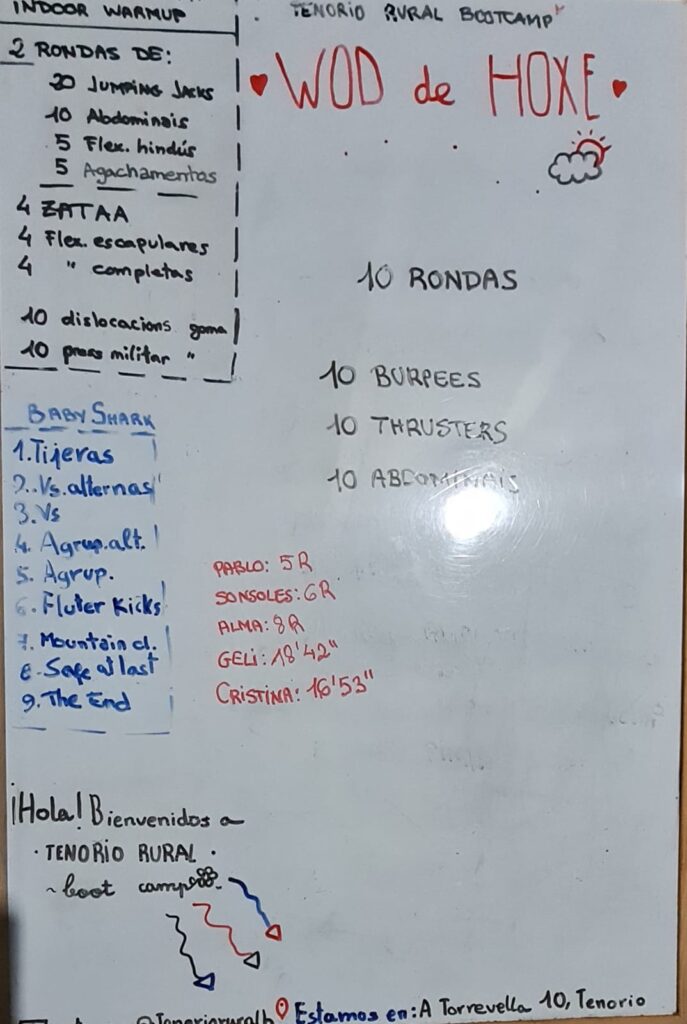 INDOOR WARMUP
2 RONDAS DE:
20 JUMPING JACKS
10 Abdominais
5 Flex. hindús
5 Agachamentos
4 ZATAA
4 Flex. escapulares
4 " completas
10 dislocacions goma
10 press militar "
BABY SHARK
1. Tijeras
2. Vs. alternas
3. Vs
4. Agrup. alt.
5. Agrup.
6. Fluter Kicks
7. Mountain cl.
8. Safe at last
9. The End
TENORIO RURAL BOOTCAMP
WOD de HOXE
10 RONDAS
10 BURPEES
10 THRUSTERS
10 ABDOMINAIS
PABLO: 5R
SONSOLES: 6R
ALMA: 8R
GELI: 18'42"
CRISTINA: 16'53"
¡Hola! Bienvenidos a
· TENORIO RURAL ·
~ boot camp
Estamos en: A Torrevella 10, Tenorio